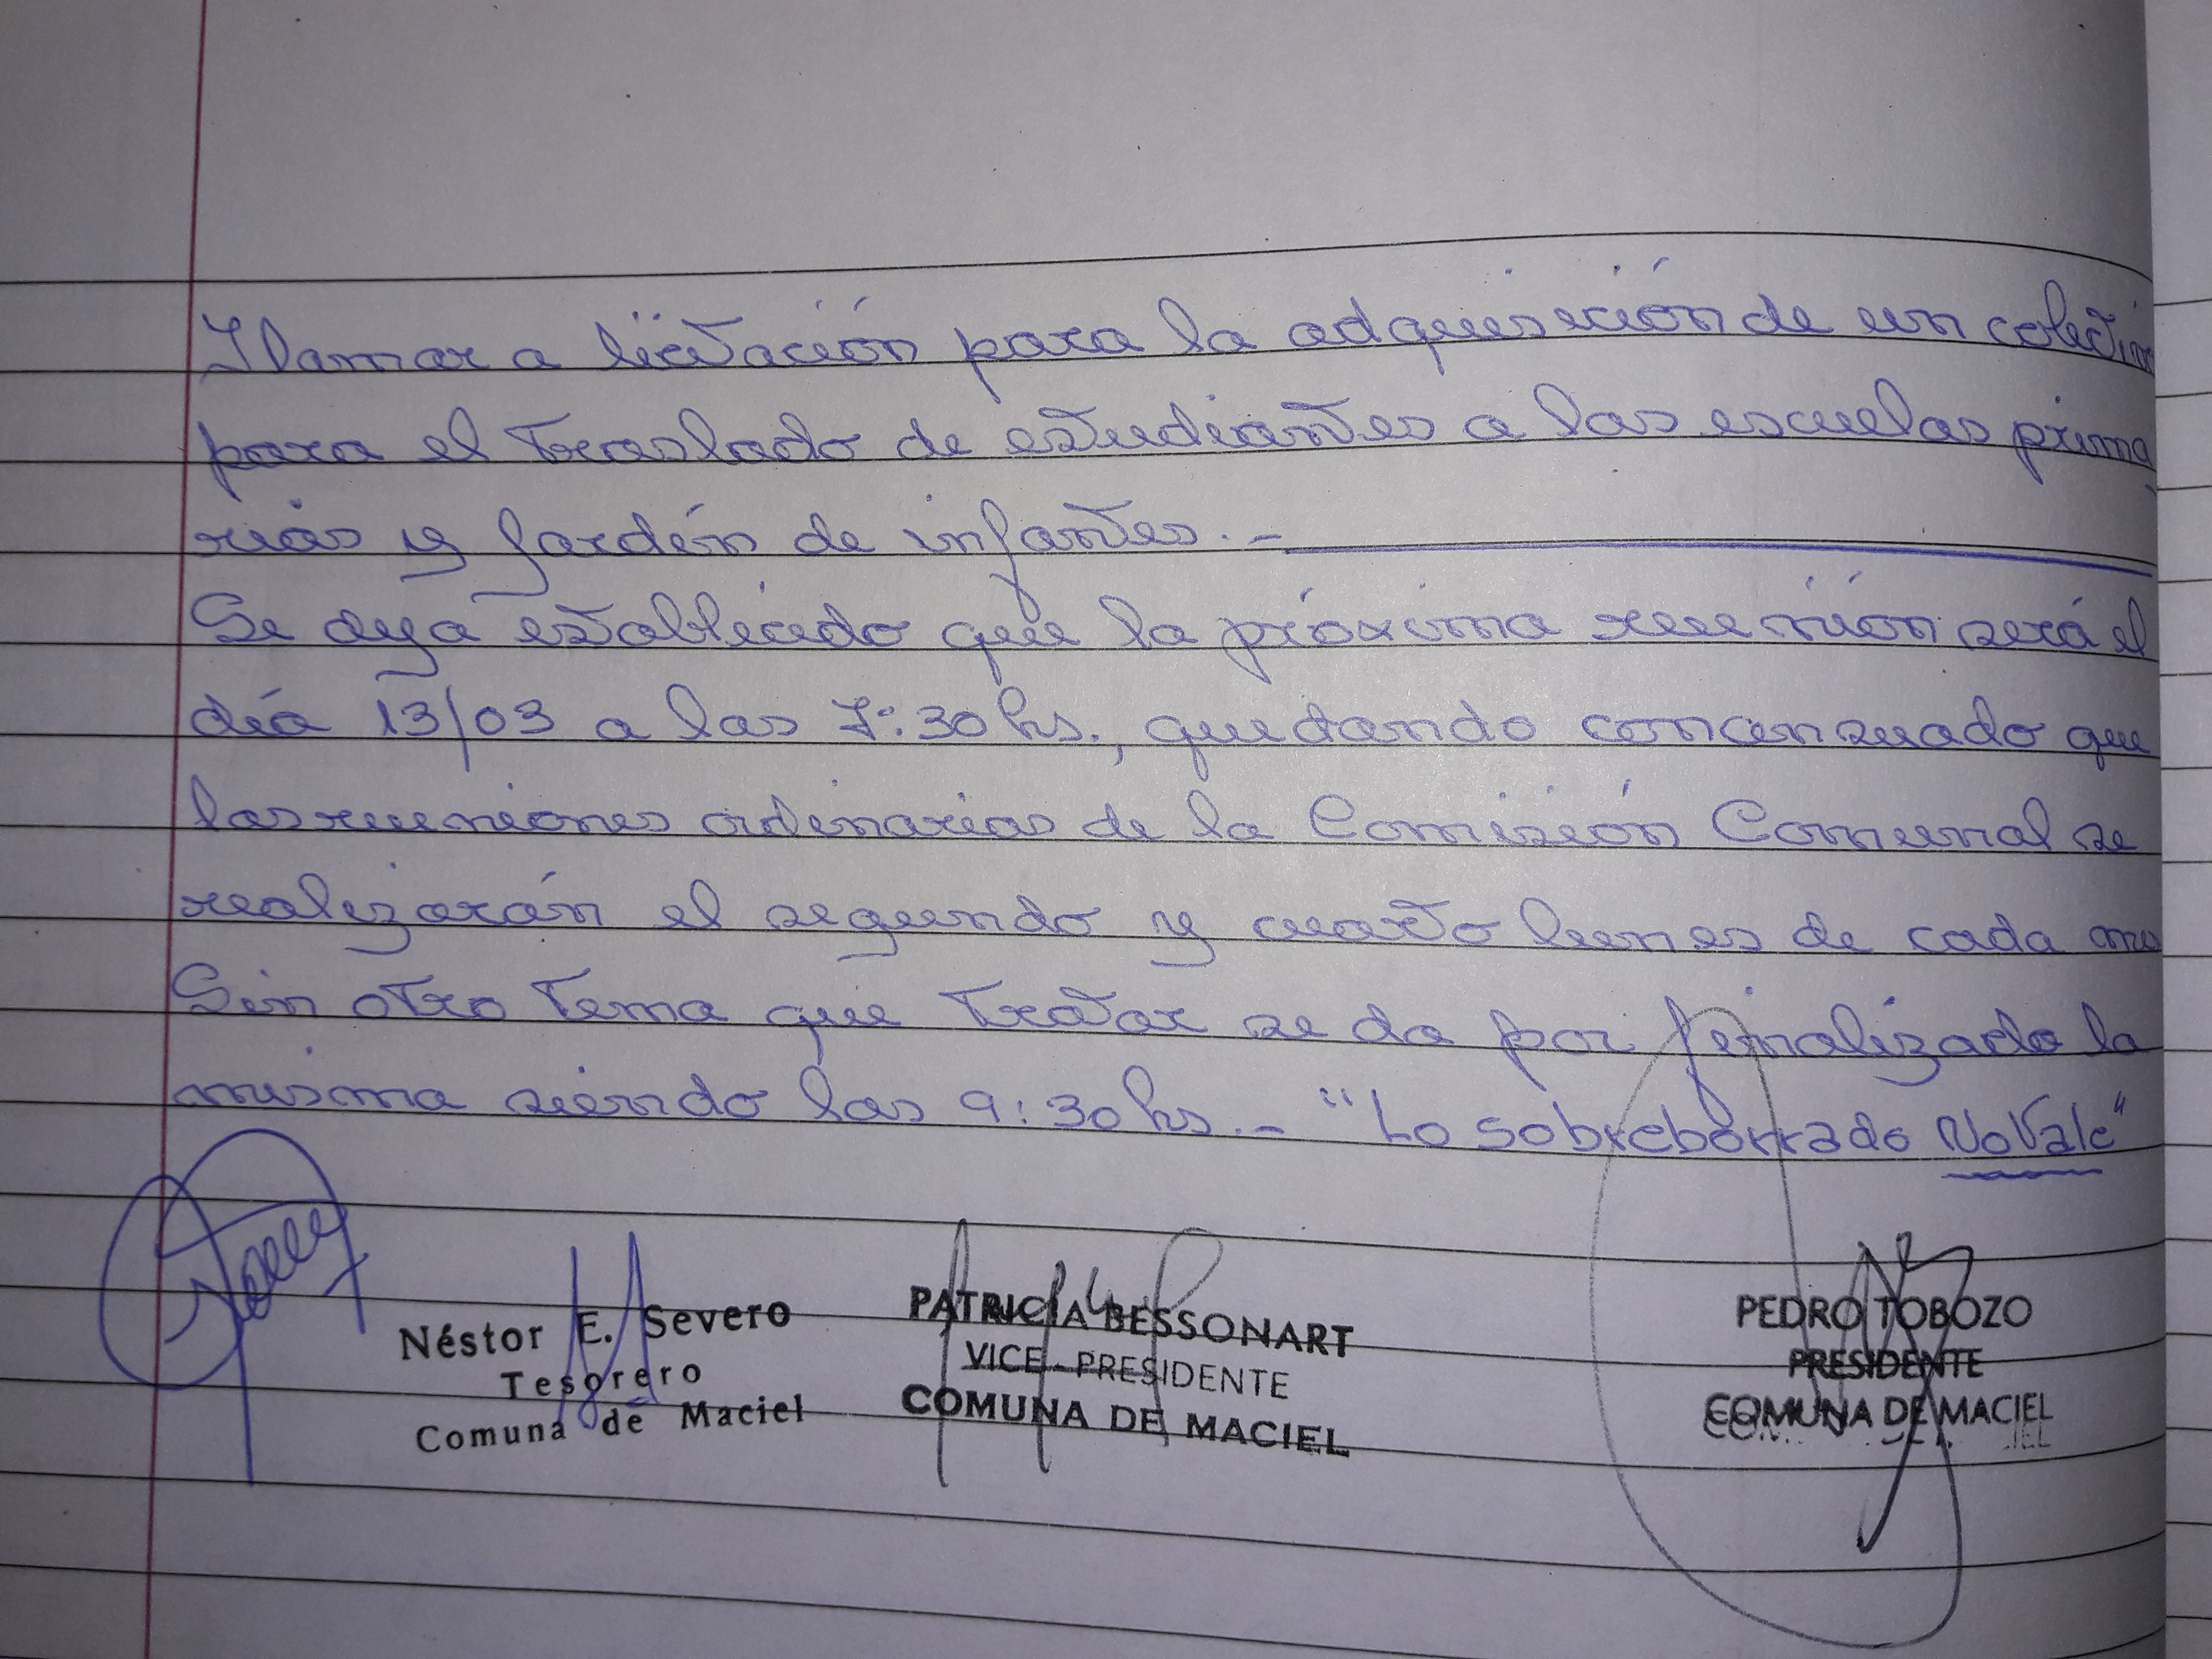 Llamar a licitación para la adquisición de un colectivo
para el traslado de estudiantes a las escuelas prima
rias y jardín de infantes.-
Se deja establecido que la próxima reunión será el
día 13/03 a las 7:30 hs., quedando concensuado que
las reuniones ordinarias de la Comisión Comunal se
realizarán el segundo y cuarto lunes de cada mes
Sin otro tema que tratar se da por finalizado la
misma siendo las 9:30 hs.- "Lo sobreborrado No Vale"
Néstor E. Severo
Tesorero
Comuna de Maciel
PATRICIA BESSONART
VICE-PRESIDENTE
COMUNA DE MACIEL
PEDRO TOBOZO
PRESIDENTE
COMUNA DE MACIEL